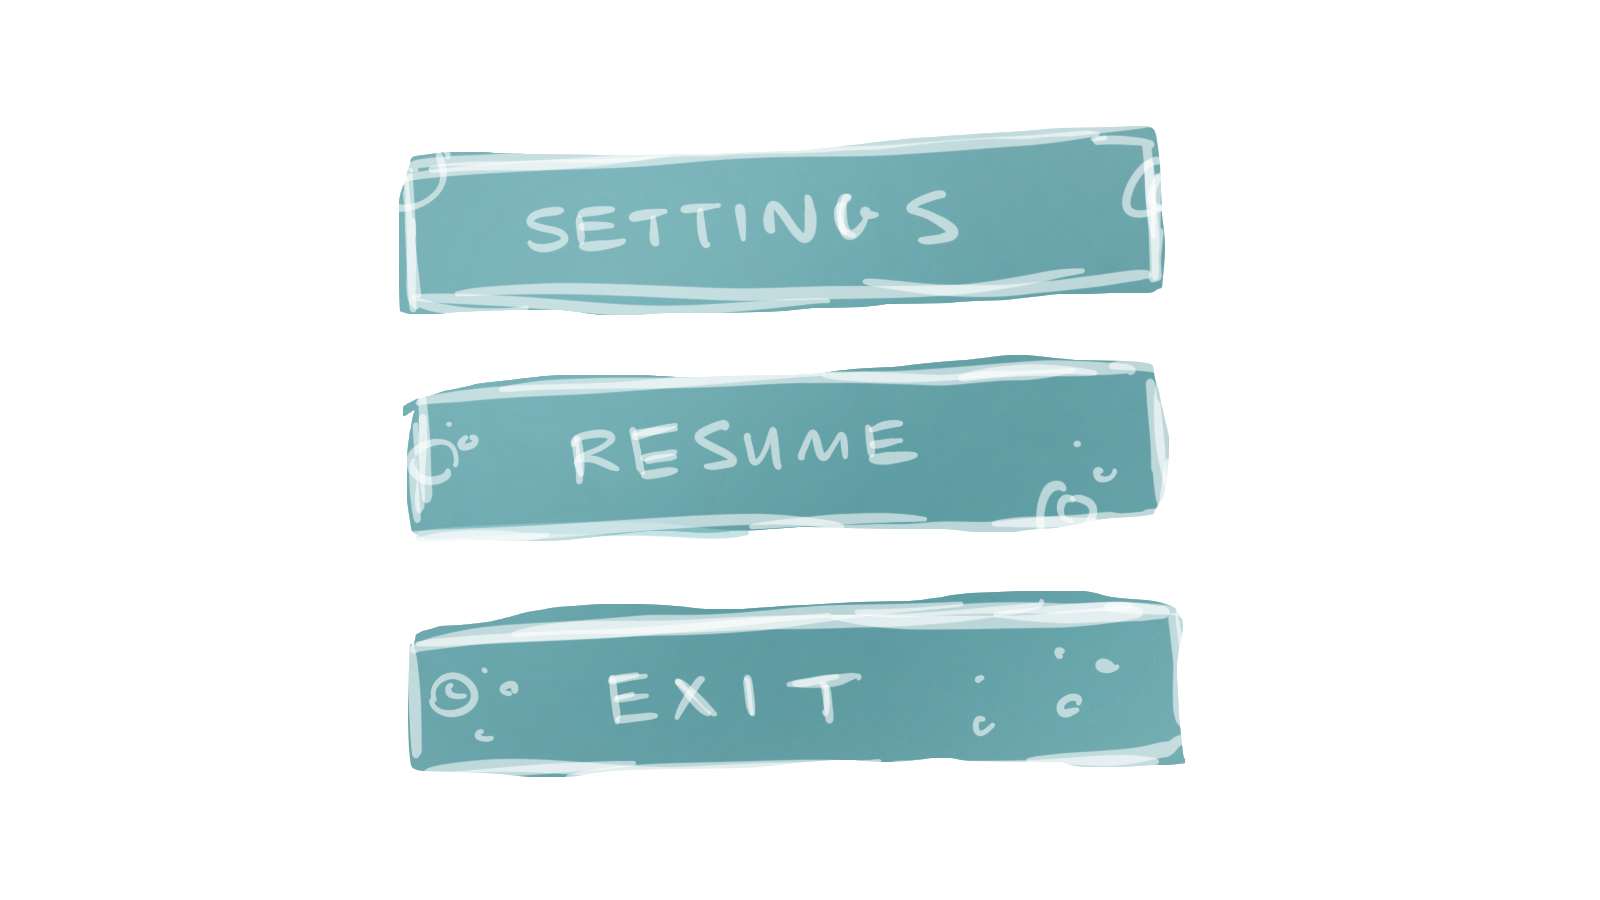 SETTINGS
RESUME
EXIT